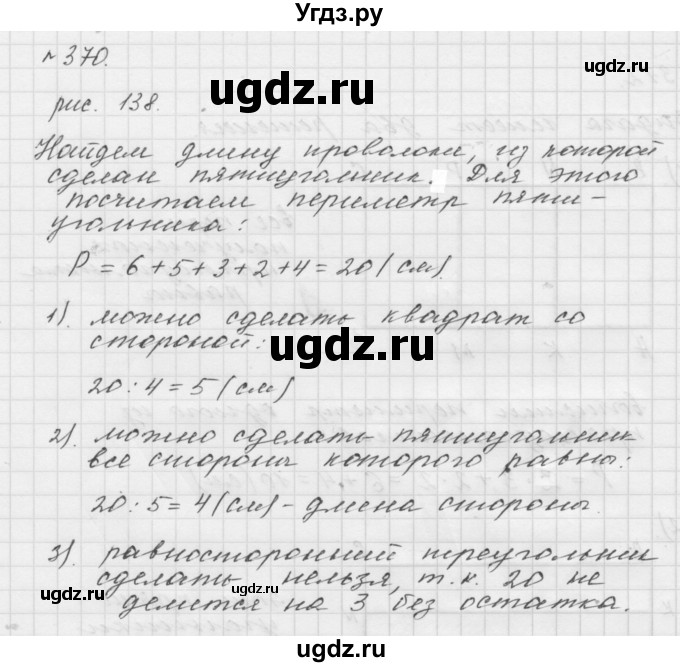 Угдз.ру
№370.
ugdz.ru
рис. 138.
Найдем длину проволоки, из которой
сделан пятиугольник. Для этого
посчитаем периметр пяти-
угольника:
P = 6+5+3+2+4=20(см).
1). можно сделать квадрат со
стороной:
ugdz.ru
20:4=5(см)
2). можно сделать пятиугольник
все стороны которого равны:
20:5=4(см)-длина стороны.
3). равносторонний треугольник
сделать нельзя, т.к. 20 не
ugdz.ru
делится на 3 без остатка.
ugdz.ru
ugdz.ru
Угдз.ру